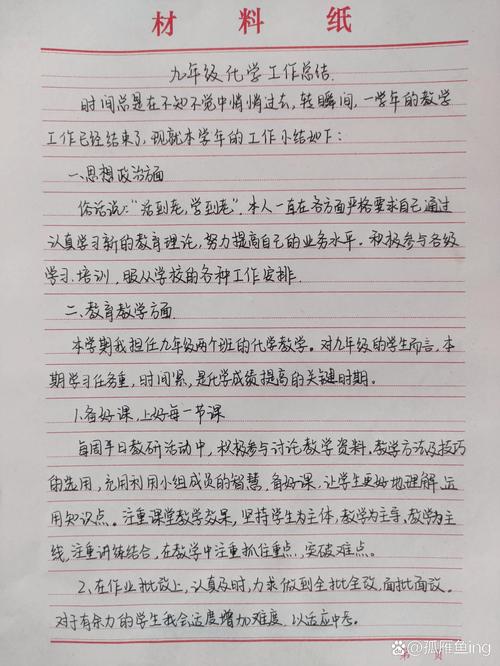 材料纸
九年级化学工作总结.
时间总是在不知不觉中悄悄过去，转瞬间，一学年的教学
工作已经结束了，现就本学年的工作小结如下：
一.思想政治方面
俗话说：“活到老，学到老”，本人一直在各方面严格要求自己，通过
认真学习新的教育理论，努力提高自己的业务水平。积极参与各级
学习.培训，服从学校的各种工作安排.
二.教育教学方面
本学期我担任九年级两个班的化学教学。对九年级的学生而言，本
期学习任务重，时间紧，是化学成绩提高的关键时期。
1.备好课，上好每一节课
每周平日教研活动中，积极参与讨论教学资料.教学方法及技巧
的选用，充用利用小组成员的智慧，备好课，让学生更好地理解、运
用知识点。注重课堂教学效果，坚持学生为主体，教学为主导，教学为主
线，注重讲练结合，在教学中注重抓住重点，突破难点。
2、在作业批改上，认真及时，力求做到全批全改，面批面改。
对于有余力的学生我会适度增加难度，以适应中考。
第 页
@孤雁鱼ing